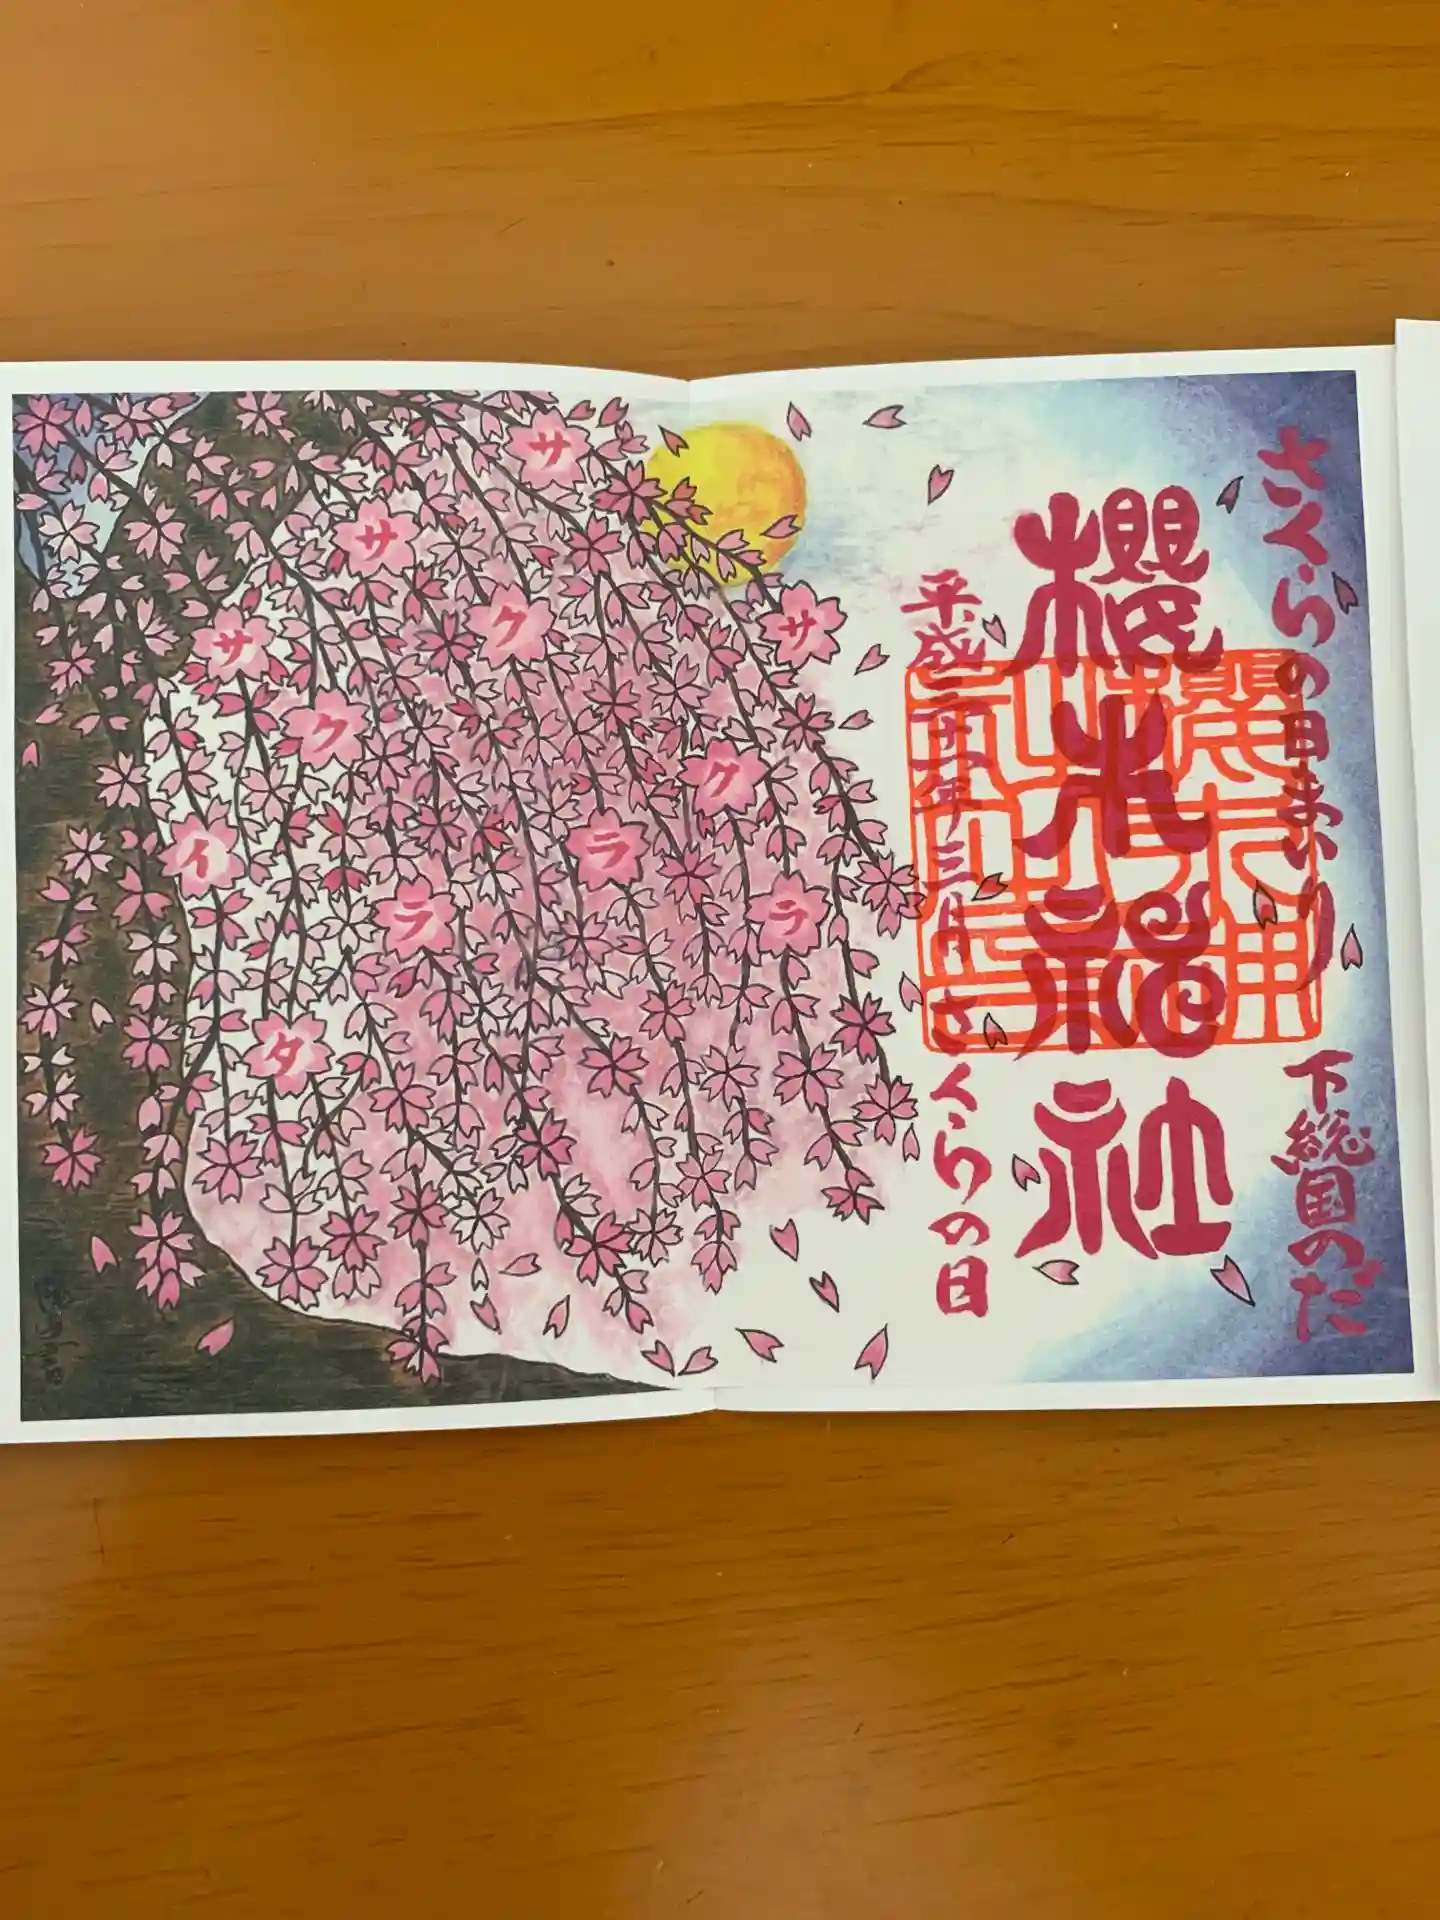 さくらの日まいり 下総国のだ
櫻木神社
平成三十一年三月さくらの日
サクラ
サクラ
サクラ
サイタ